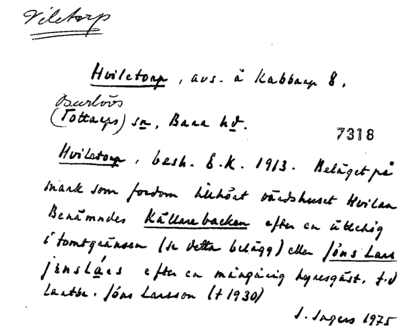 Viletorp
Hviletorp, avs. å Kabbarp 8,
Burlövs
(Tottarps) sn, Bara hd.
7318
Hviletorp, besh. E.K. 1913. Beläget på
mark som fordom tillhört värdshuset Hvilan
Benämndes Källarebacken efter en
i tomtgränsen (se detta belägg) eller Jöns Lars
jensläes efter en mångårig hyresgäst, f.d
lantbr. Jöns Larsson († 1930)
I. Ingers 1975